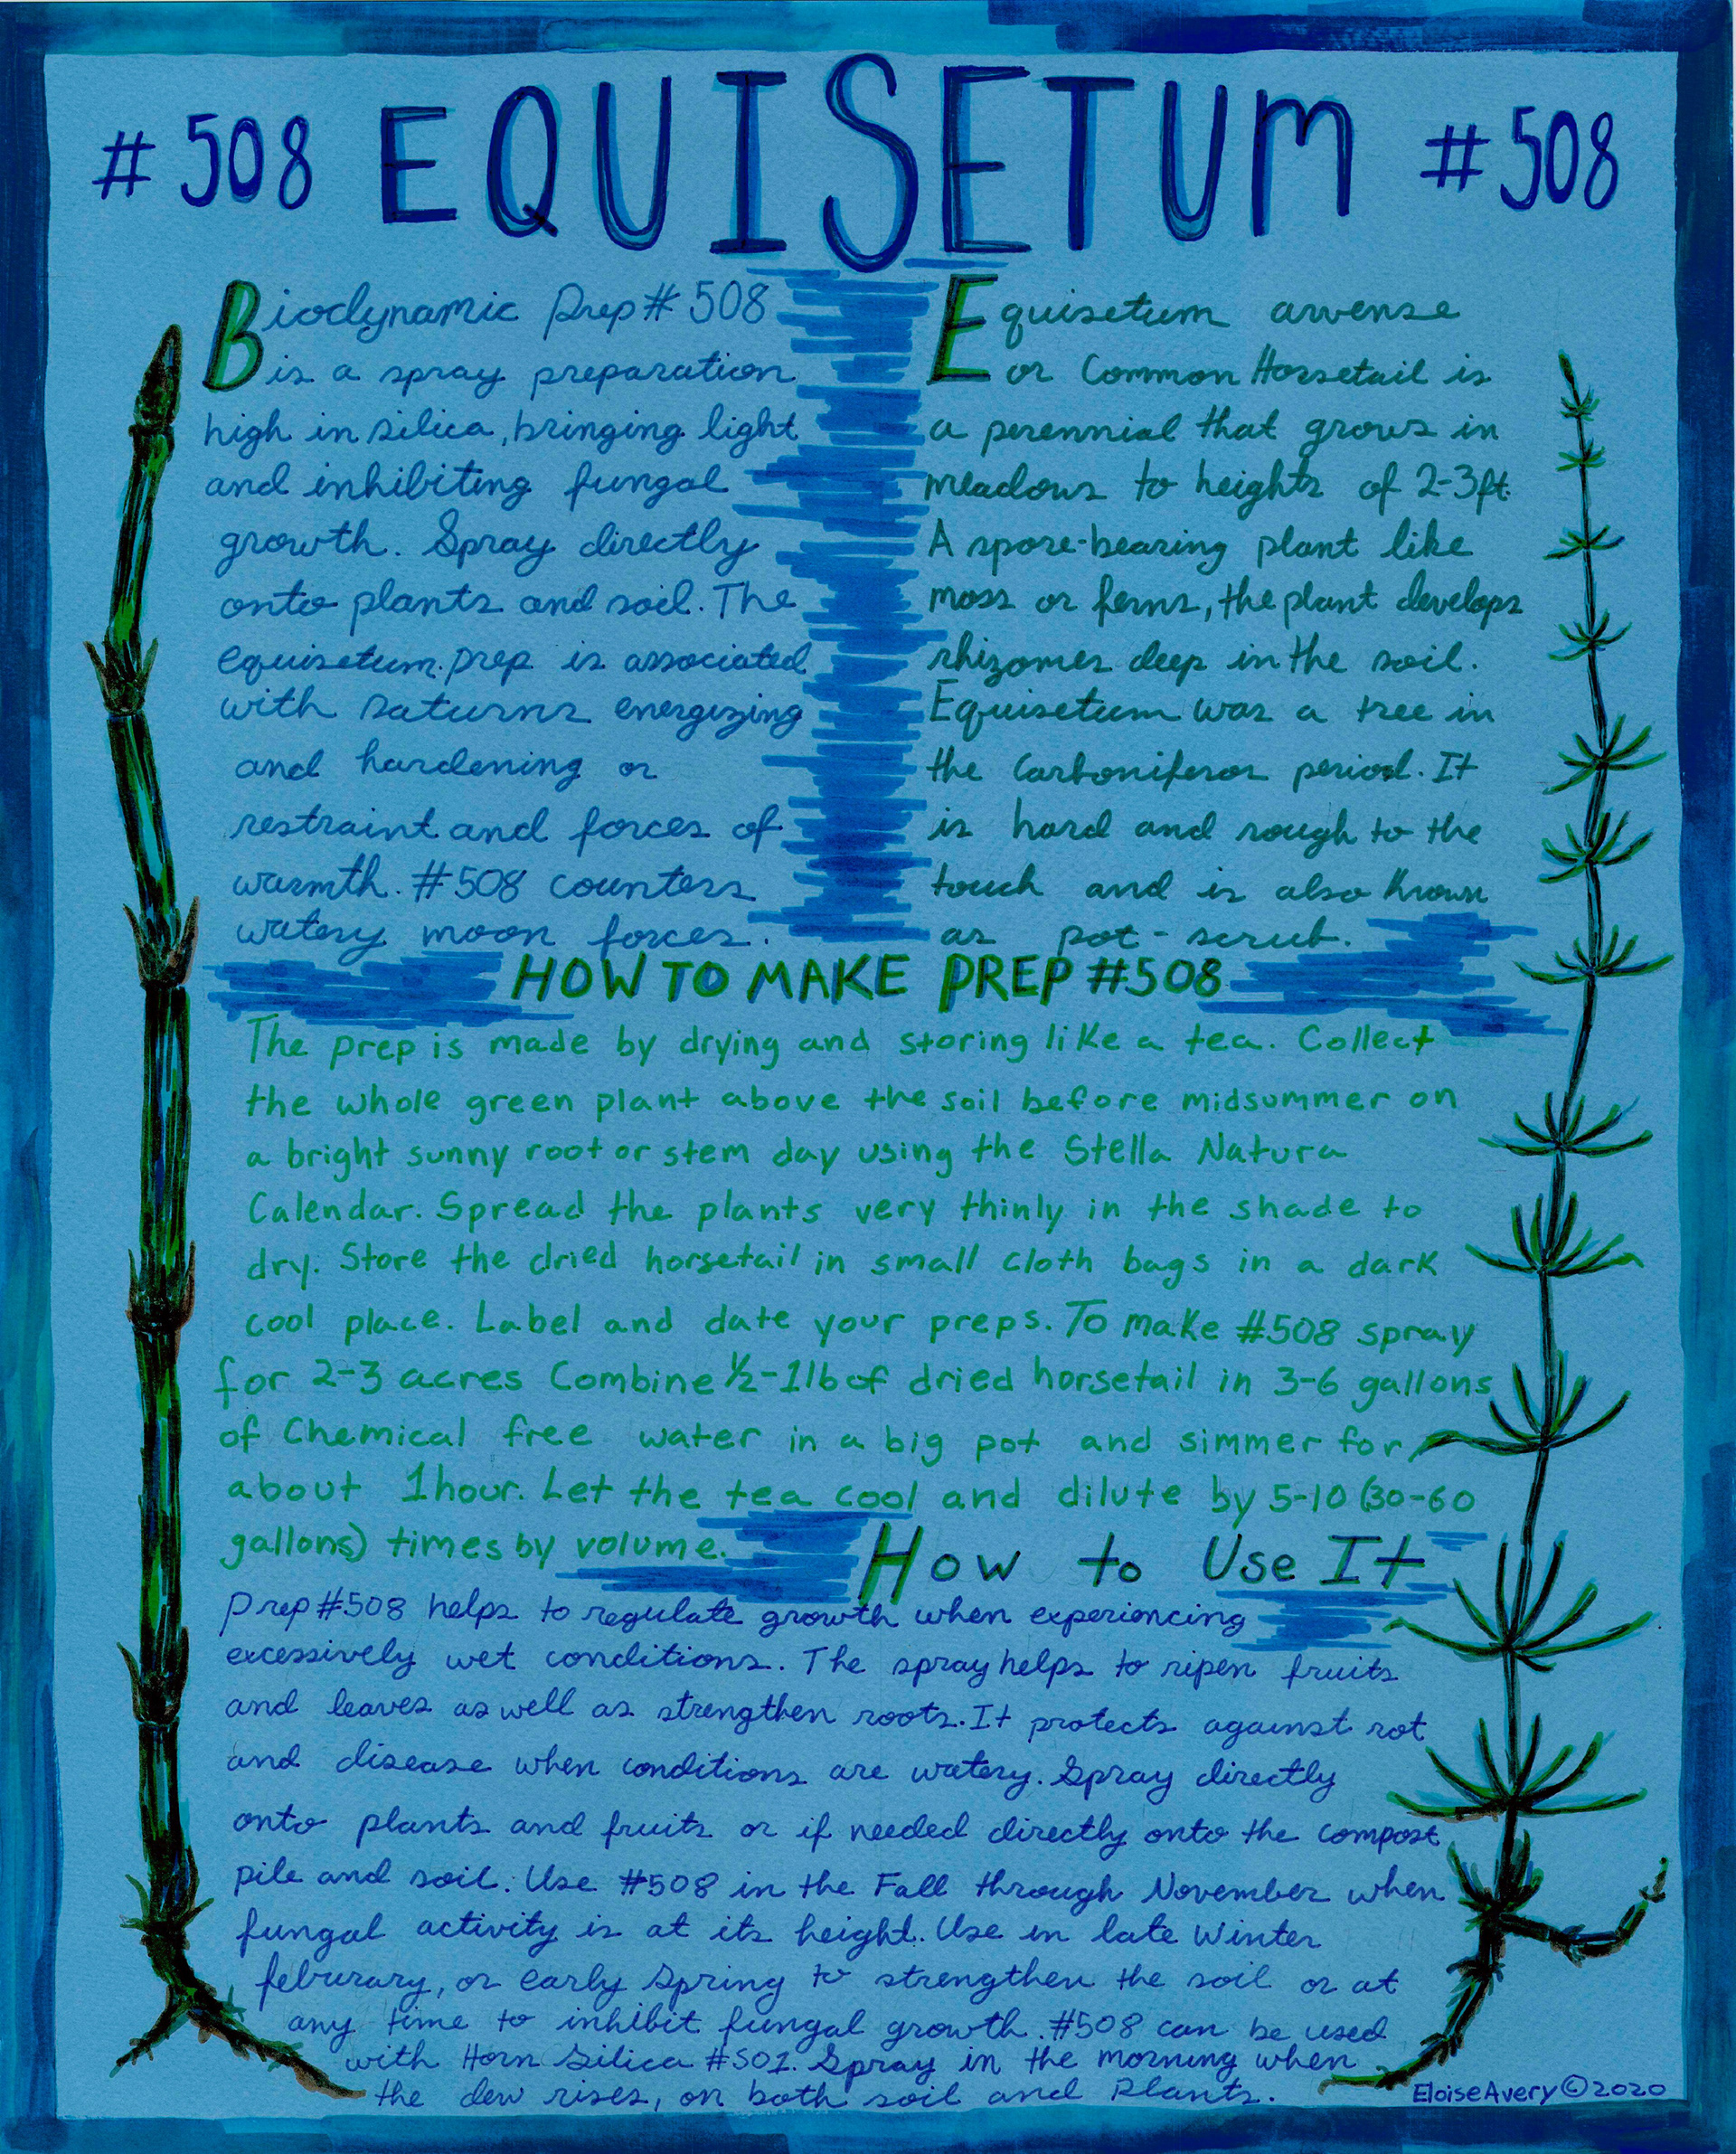 #508 EQUISETUM #508
Biodynamic Prep #508
is a spray preparation
high in silica, bringing light
and inhibiting fungal
growth. Spray directly
onto plants and soil. The
equisetum prep is associated
with saturns energizing
and hardening or
restraint and forces of
warmth. #508 counters
watery moon forces.
Equisetum arvense
or Common Horsetail is
a perennial that grows in
meadows to heights of 2-3ft.
A spore-bearing plant like
moss or ferns, the plant develops
rhizomes deep in the soil.
Equisetum was a tree in
the Carboniferos period. It
is hard and rough to the
touch and is also known
as pot-scrub.
HOW TO MAKE PREP #508
The prep is made by drying and storing like a tea. Collect
the whole green plant above the soil before midsummer on
a bright sunny root or stem day using the Stella Natura
Calendar. Spread the plants very thinly in the shade to
dry. Store the dried horsetail in small cloth bags in a dark
cool place. Label and date your preps. To make #508 spray
for 2-3 acres Combine ½-1lb of dried horsetail in 3-6 gallons
of Chemical free water in a big pot and simmer for
about 1 hour. Let the tea cool and dilute by 5-10 (30-60
gallons) times by volume.
How to Use It
Prep #508 helps to regulate growth when experiencing
excessively wet conditions. The spray helps to ripen fruits
and leaves as well as strengthen roots. It protects against rot
and disease when conditions are watery. Spray directly
onto plants and fruits or if needed directly onto the compost
pile and soil. Use #508 in the Fall through November when
fungal activity is at its height. Use in late Winter
feburary, or early Spring to strengthen the soil or at
any time to inhibit fungal growth. #508 can be used
with Horn Silica #501. Spray in the morning when
the dew rises, on both soil and Plants.
Eloise Avery © 2020